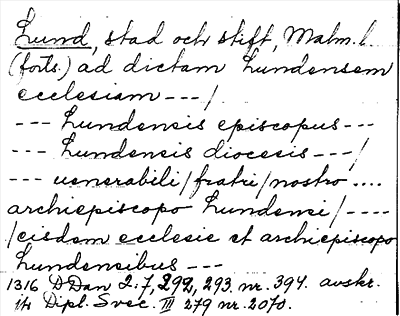 Lund, stad och stift, Malm. l.
(forts.) ad dictam Lundensem
ecclesiam ---/
--- Lundensis episcopus ---
--- Lundensis diocesis ---/
--- uenerabili/fratri/nostro ....
archiepiscopo Lundensi/----
/eisdem ecclesie et archiepiscopo
Lundensibus ---
1316 DDan 2:7, 292, 293. nr. 394. avskr.
Dipl. Svec. III 279 nr. 2070.